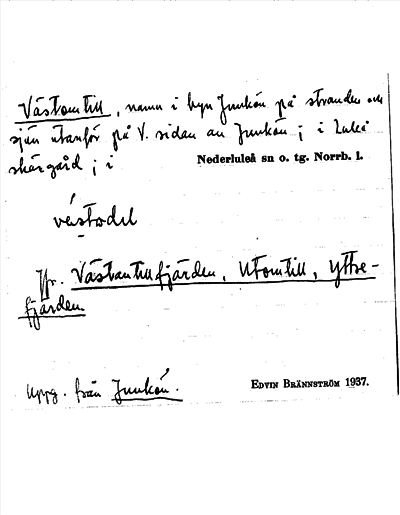 Västomtill, namn i byn Junkön på stranden och
sjön utanför på V. sidan av Junkön; i Luleå
skärgård; i Nederluleå sn o. tg. Norrb. l.
Jfr. Västantillfjärden, Utomtill, Yttre-
fjärden
Uppg. från Junkön. EDVIN BRÄNNSTRÖM 1937.